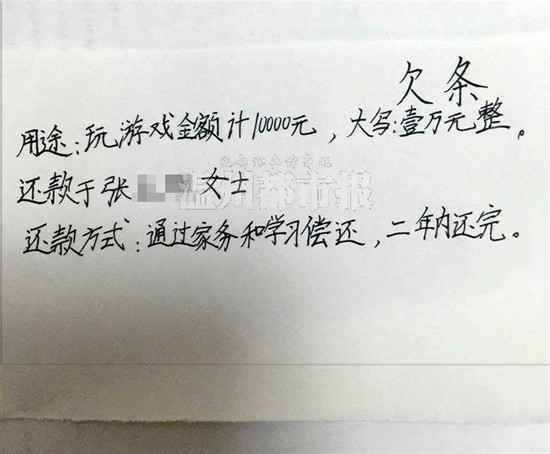 欠条
用途：玩游戏金额计10000元，大写：壹万元整。
还款于张 女士
温州都市报
还款方式：通过家务和学习偿还，二年内还完。